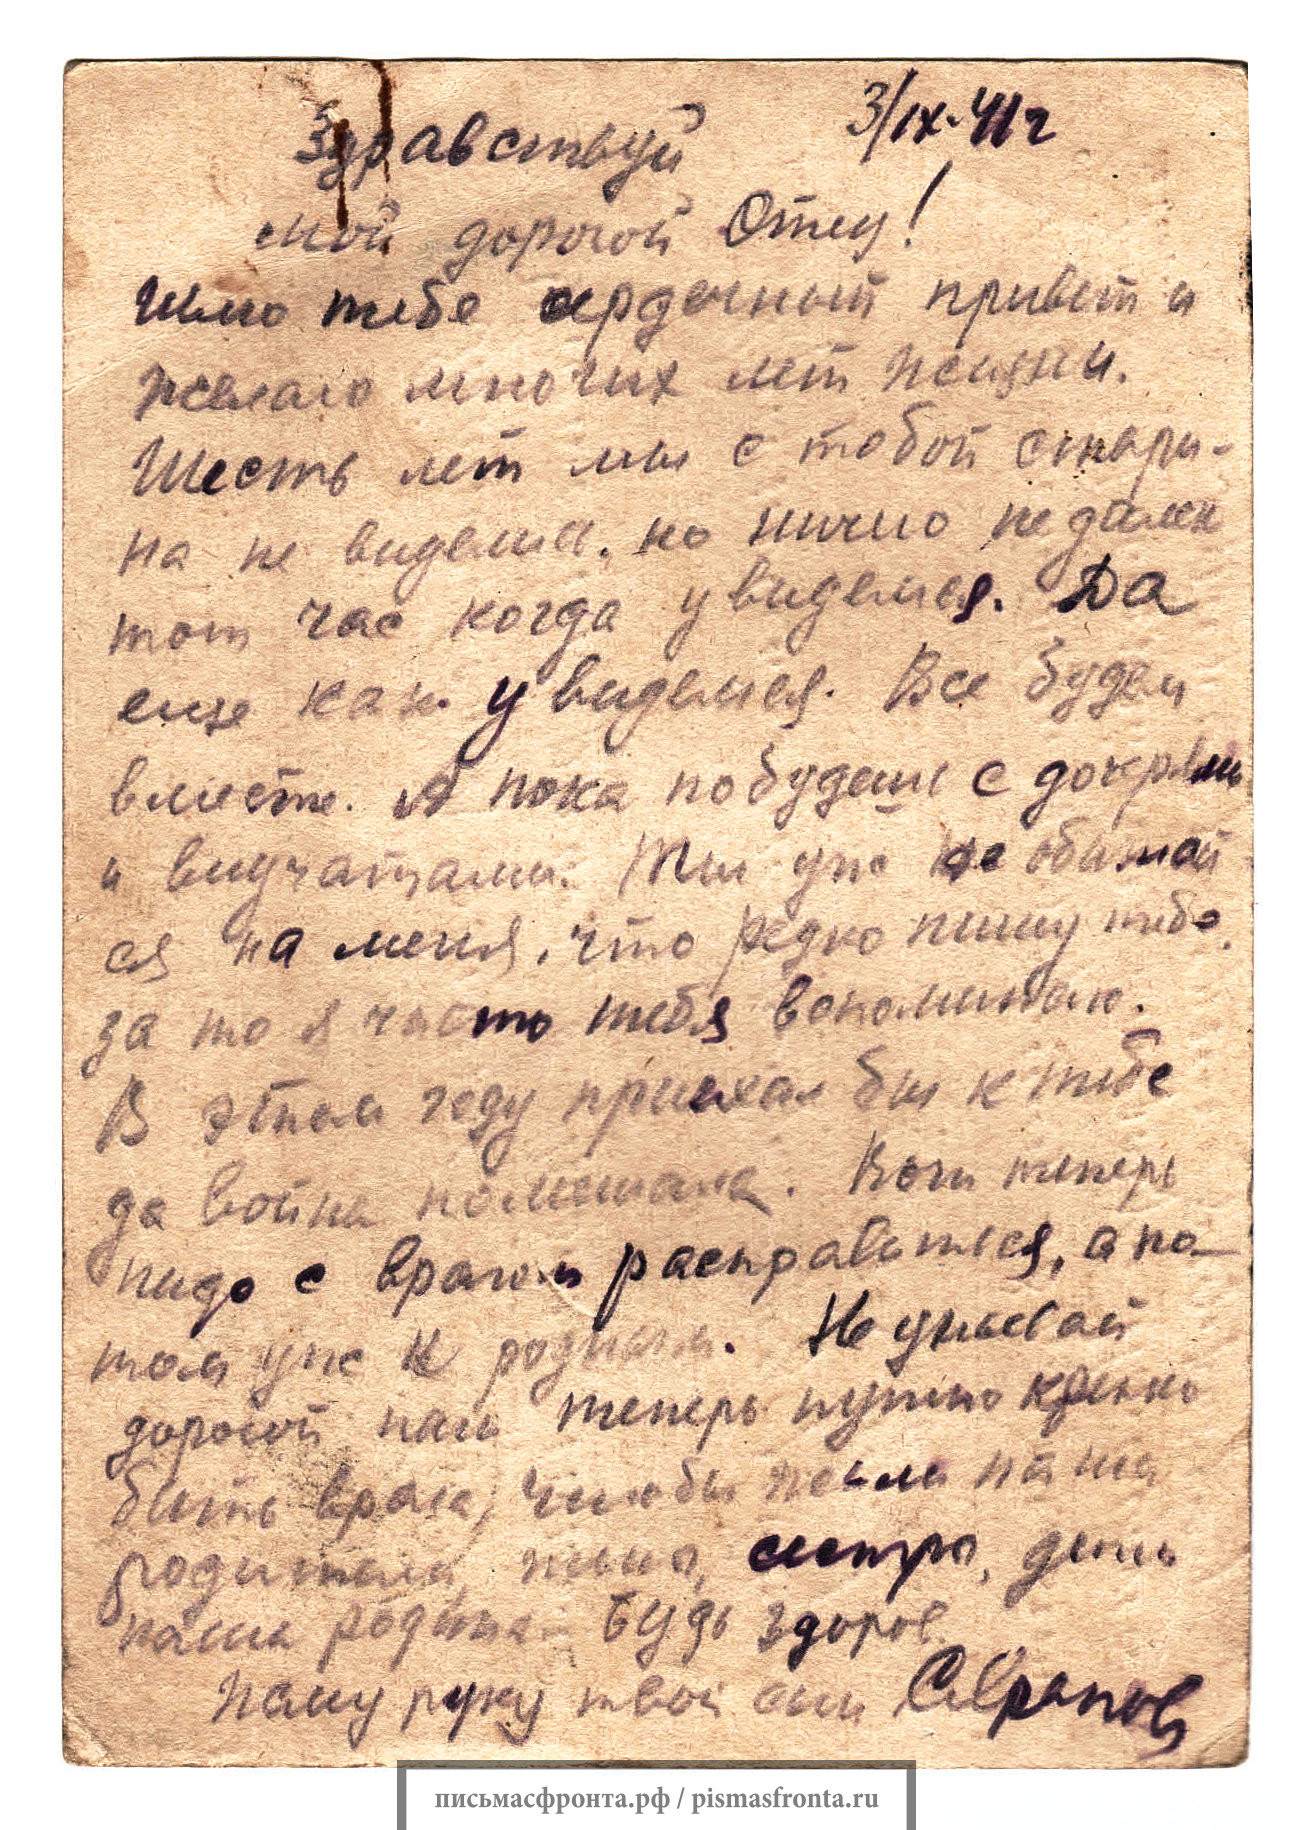 3/IX-41 г
Здравствуй
мой дорогой Отец!
Шлю тебе сердечный привет и
желаю многих лет жизни.
Шесть лет мы с тобой
на не виделись, но ничего недалек
тот час когда увидемся. Да
еще как увидемся. Все будем
вместе. А пока побудешь с дочерями
и внучатами. Ты уж не обижай
ся на меня, что редко пишу тебе,
за то я часто тебя вспоминаю.
В этом году приехал бы к тебе
да война помешала. Вот теперь
надо с врагом расправиться, а по-
том уж к родным. Не унывай
дорогой папа теперь нужно крепко
бить врага, чтобы жили наши
родители, жены, сестры, дети
наша родина. Будь здоров.
Жму руку твой сын
письмасфронта.рф / pismasfronta.ru